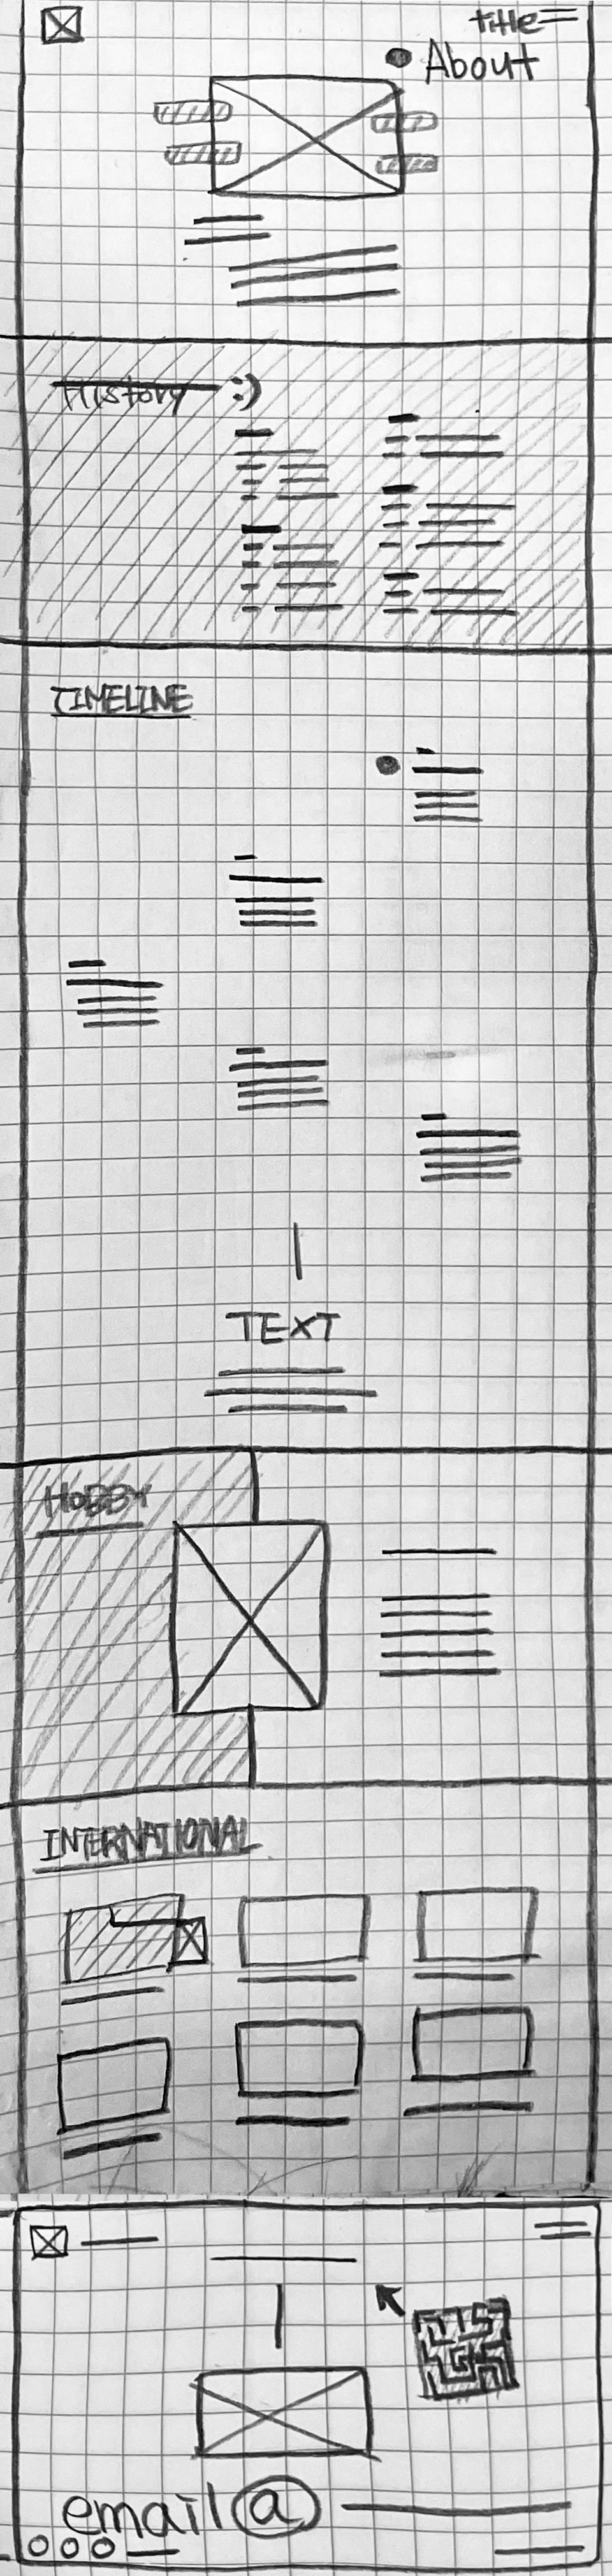 title
About
History :)
TIMELINE
TEXT
HOBBY
INTERNATIONAL
email@